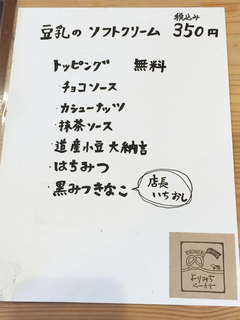 税込み
豆乳の ソフトクリーム 350円
トッピング 無料
・チョコソース
・カシューナッツ
・抹茶ソース
・道産小豆 大納言
・はちみつ
・黒みつきなこ
店長
いちおし
よりみち
ベーカリー